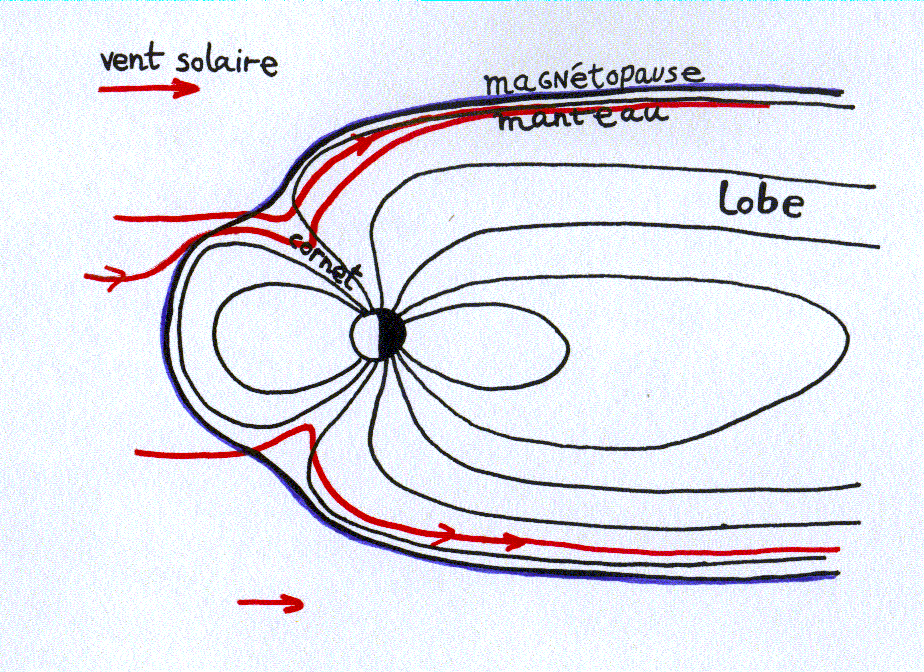 vent solaire
magnétopause
manteau
Lobe
cornet